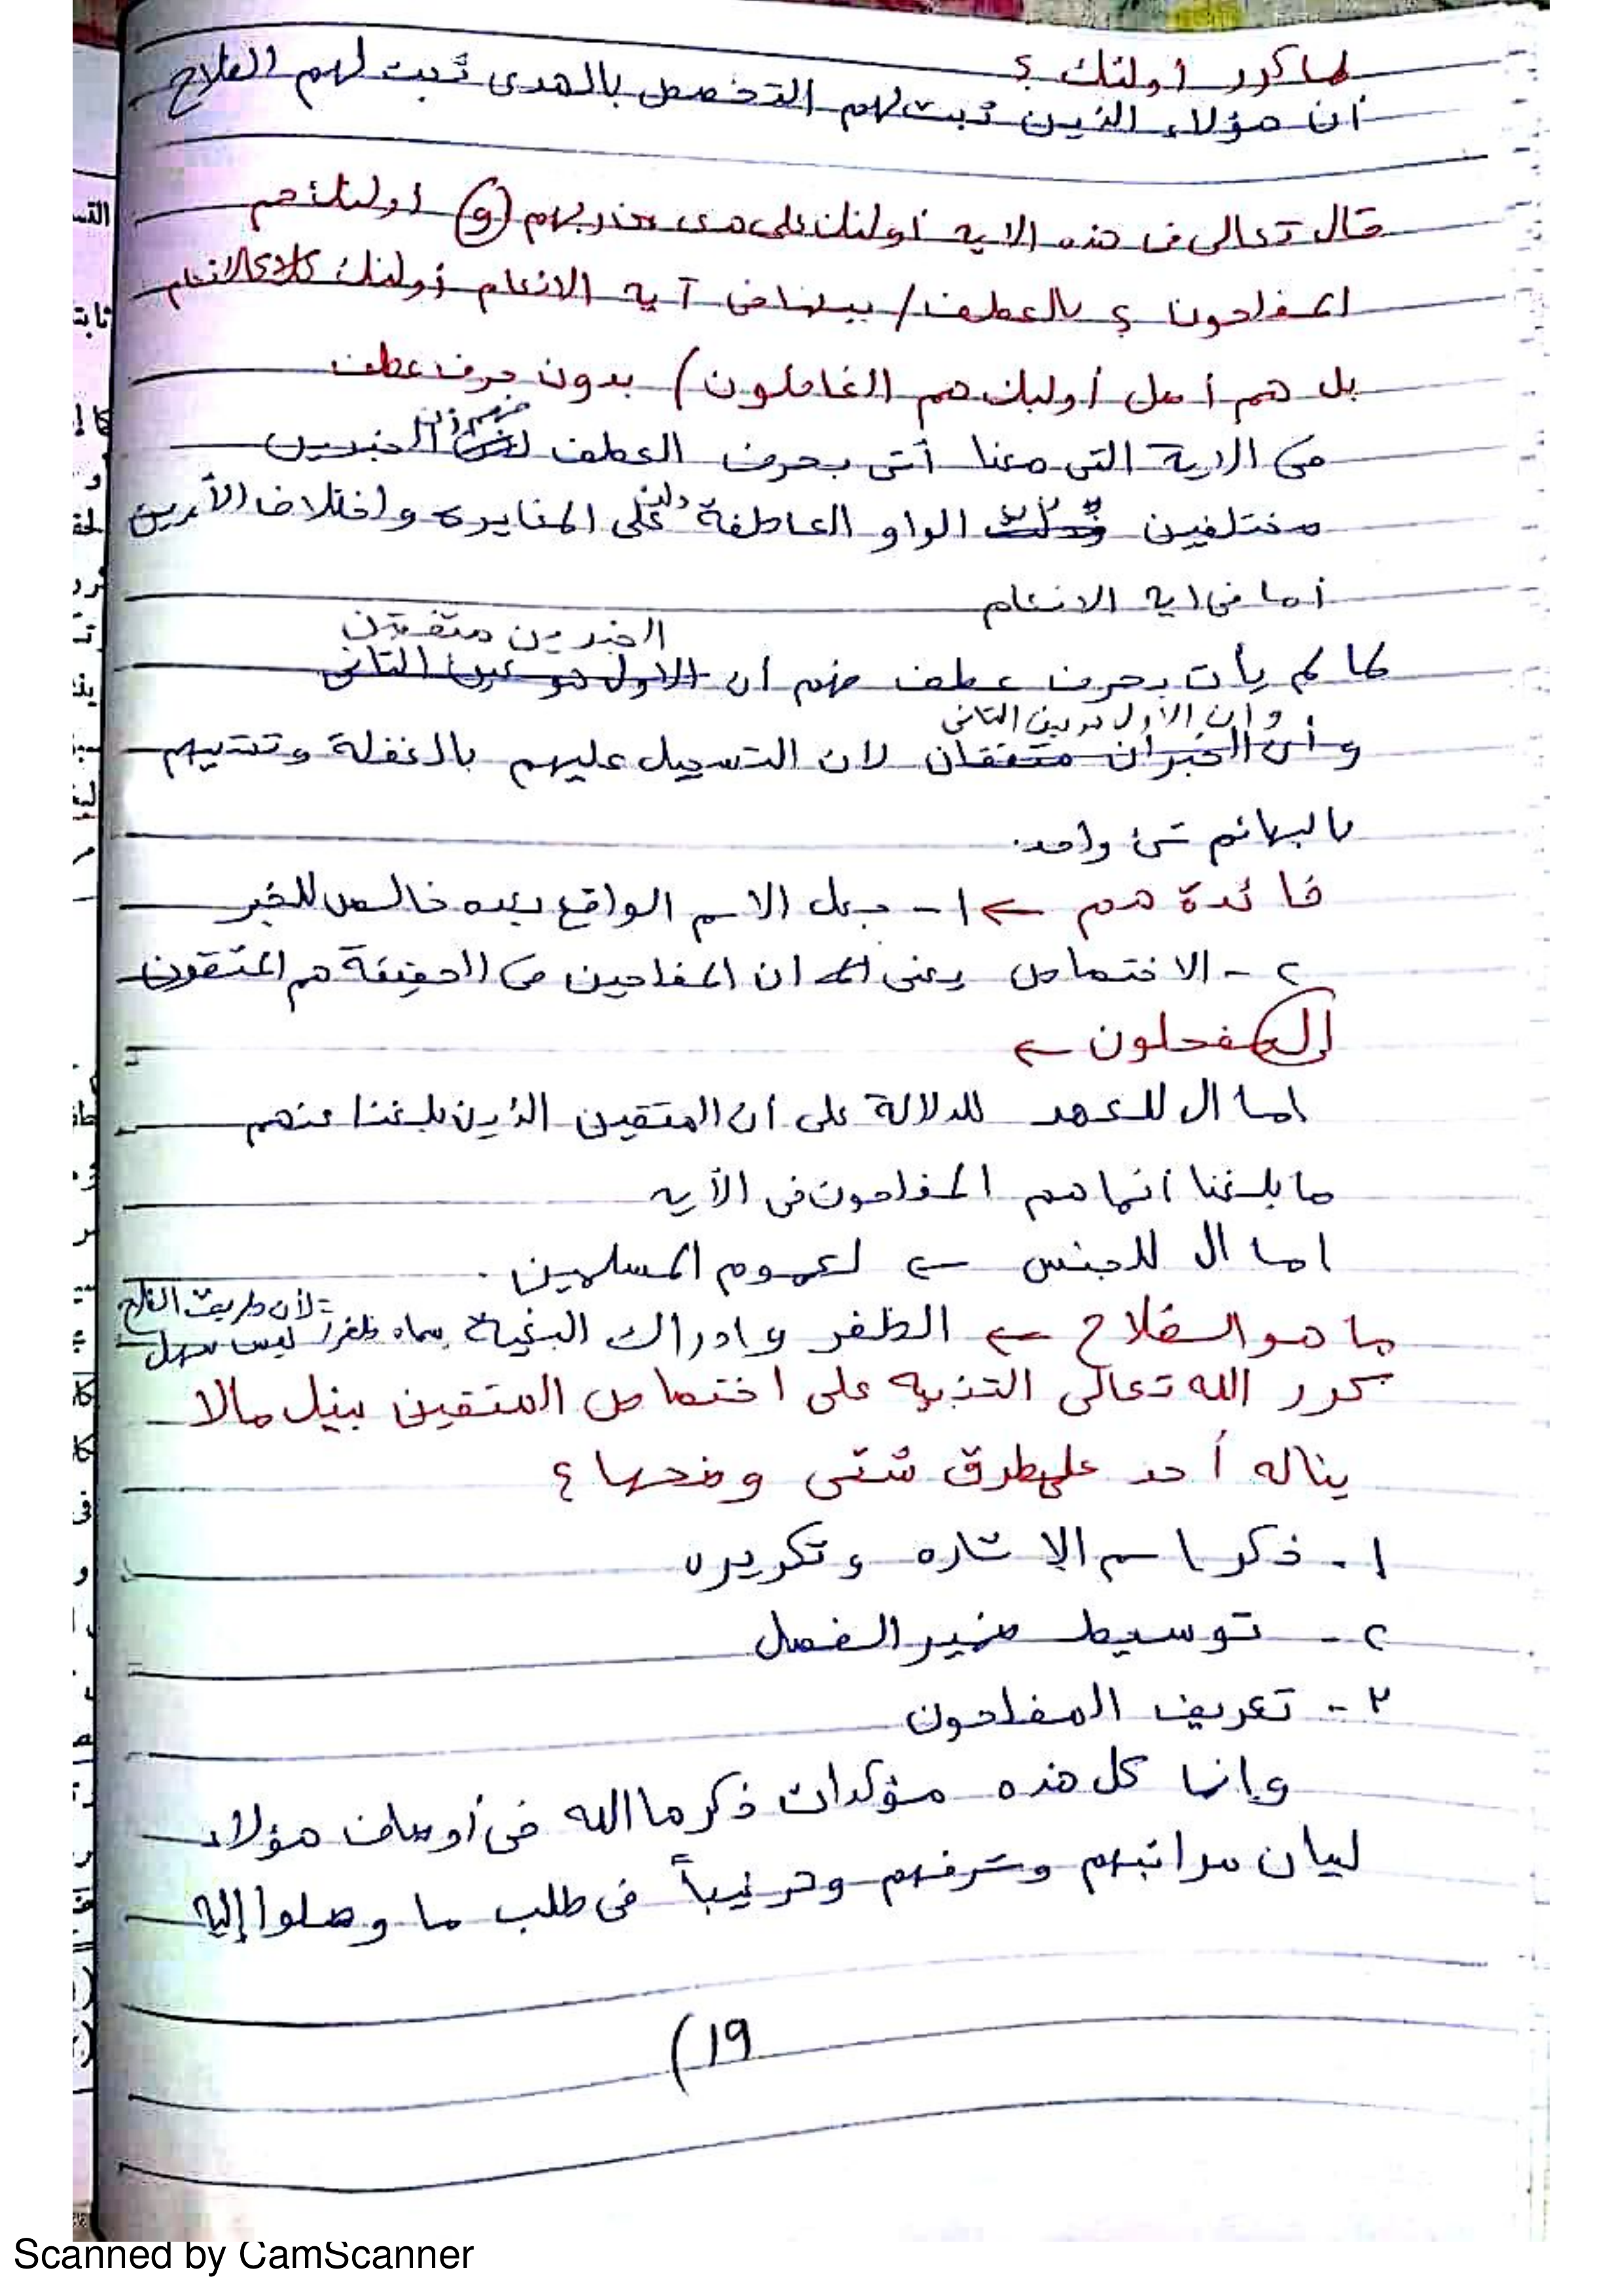 لما كرر أولئك ؟
أن هؤلاء الذين ثبت لهم التخصص بالهدى ثبت لهم الفلاح
قال تعالى فى هذه الايه أولئك على هدى من ربهم (و) أولئك هم
المفلحون ؟ بالعطف / بينما فى آية الانعام أولئك كالانعام
بل هم أضل أولئك هم الغافلون) بدون حرف عطف
فى الاية التى معنا أتى بحرف العطف الخبريين
مختلفين الواو العاطفة على المغايره واختلاف الأمرين
أما فى ايه الانعام
الخبرين متفقين
لما لم يأت بحرف عطف فهم أن الاول هو عين الثانى
وان الأول هو عين الثانى
وأن الخبران متفقان لان التسجيل عليهم بالغفلة وتشبيههم
بالبهائم شئ واحد.
فائدة هم ← ١- جعل الاسم الواقع بعده خالص للخبر
٢- الاختصاص يعنى ان المفلحين فى الحقيقة هم المتقون
المفحلون ←
اما ال للعهد للدلالة على أن المتقين الذين بلغنا عنهم
ما بلغنا انما هم المفلحون فى الأيه
اما ال للجنس ← لعموم المسلمين.
لأن طريق الفلاح
ما هو الفلاح ← الظفر وادراك البغية سماه ظفرا ليس سهل
كرر الله تعالى التنبيه على اختصاص المتقين بنيل مالا
يناله أحد على طرق شتى وضحها ؟
١- ذكر اسم الاشاره وتكريره
٢- توسيط ضمير الفصل
٣- تعريف المفلحون
وإنما كل هذه مؤكدات ذكرها الله فى أوصاف هؤلاء
لبيان مراتبهم وشرفهم وترغيباً فى طلب ما وصلوا إليه
(19
Scanned by CamScanner